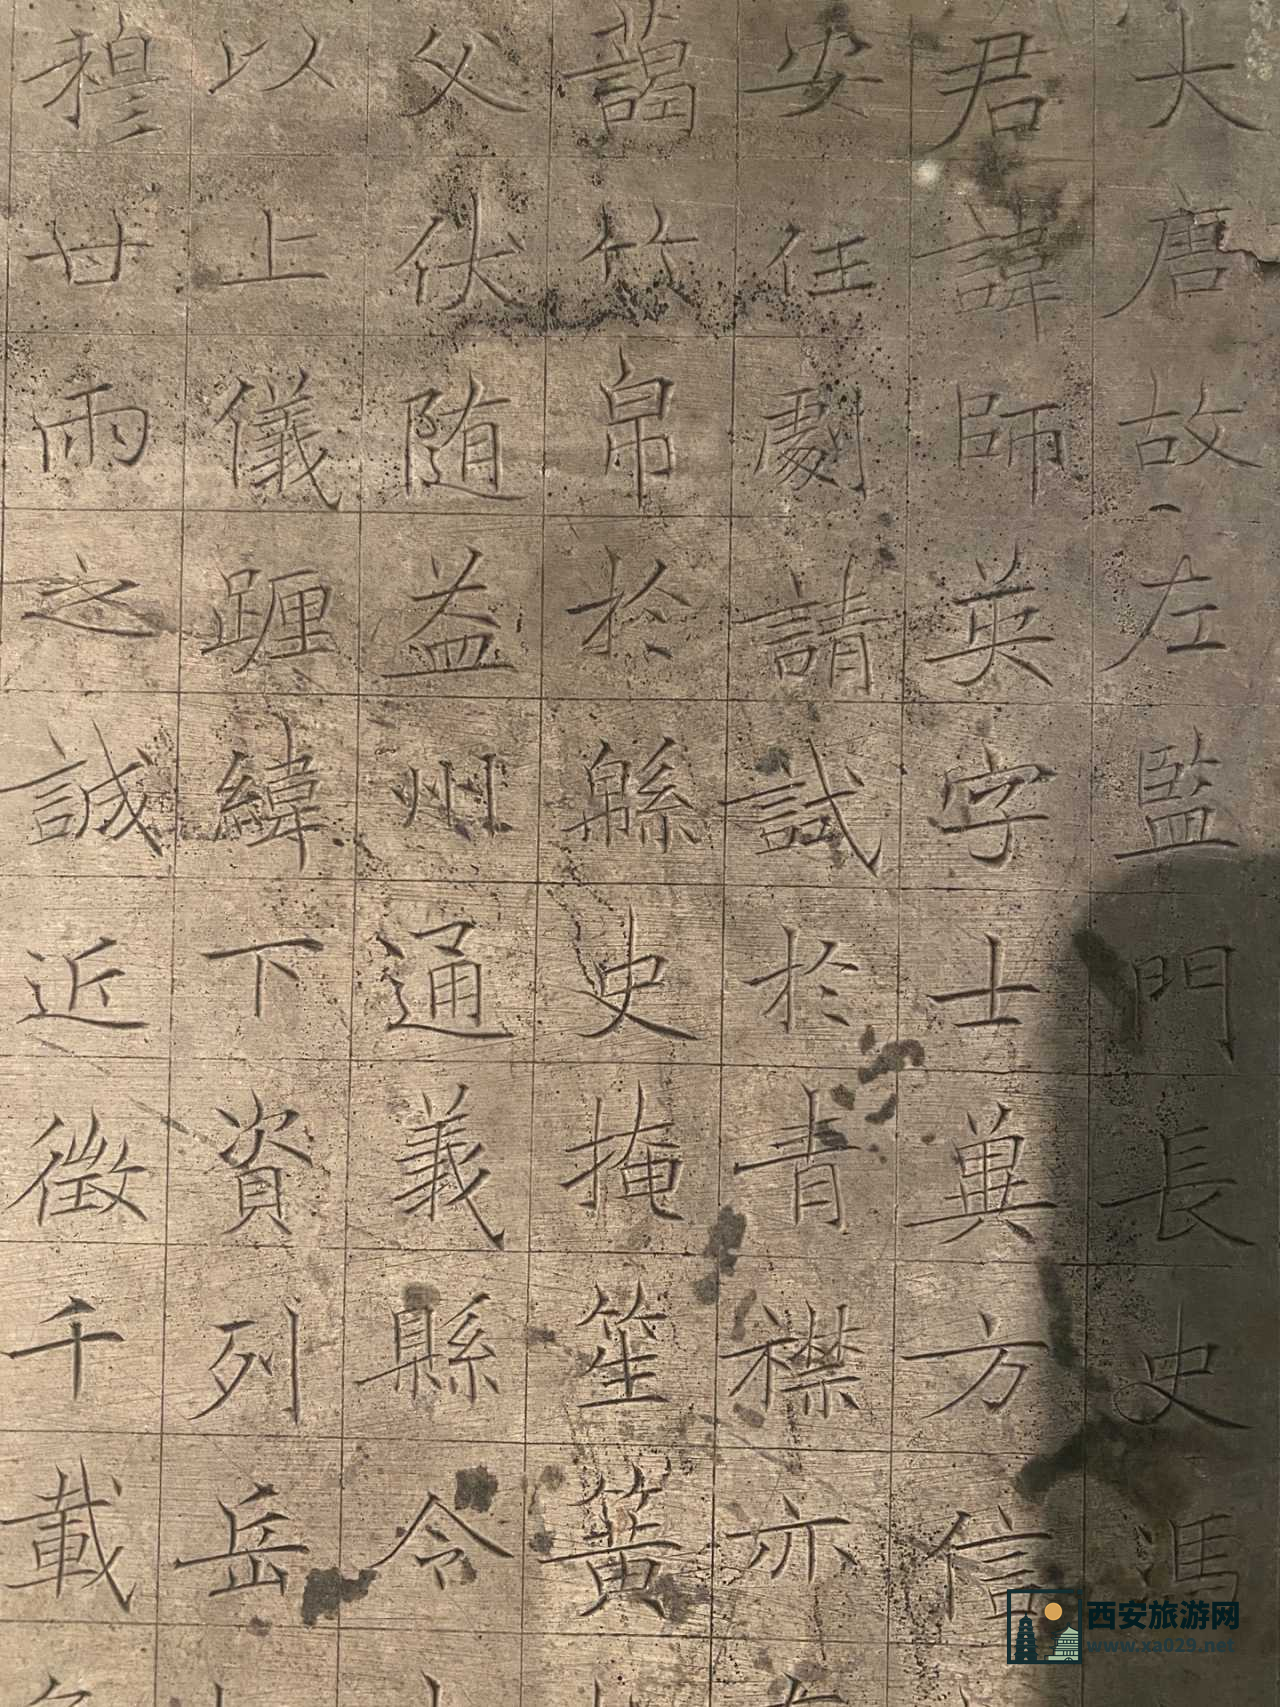 大唐故左監門長史馮
君諱師英字士兾方信
安任劇請試於青襟亦
藹竹帛於緜史掩笙簧
父伏随益州通義縣令
以上儀躔緯下資列岳
穆甘雨之誠近徵千載
西安旅游网
www.xa029.net